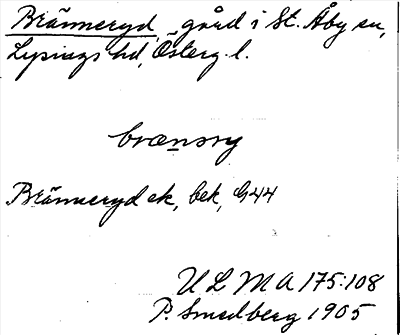 Bränneryd, gård i St. Åby sn,
Lysings hd, Österg. l.
brænsry
Bränneryd ek, bek, G44
ULMA 175:108
P. Smedberg 1905